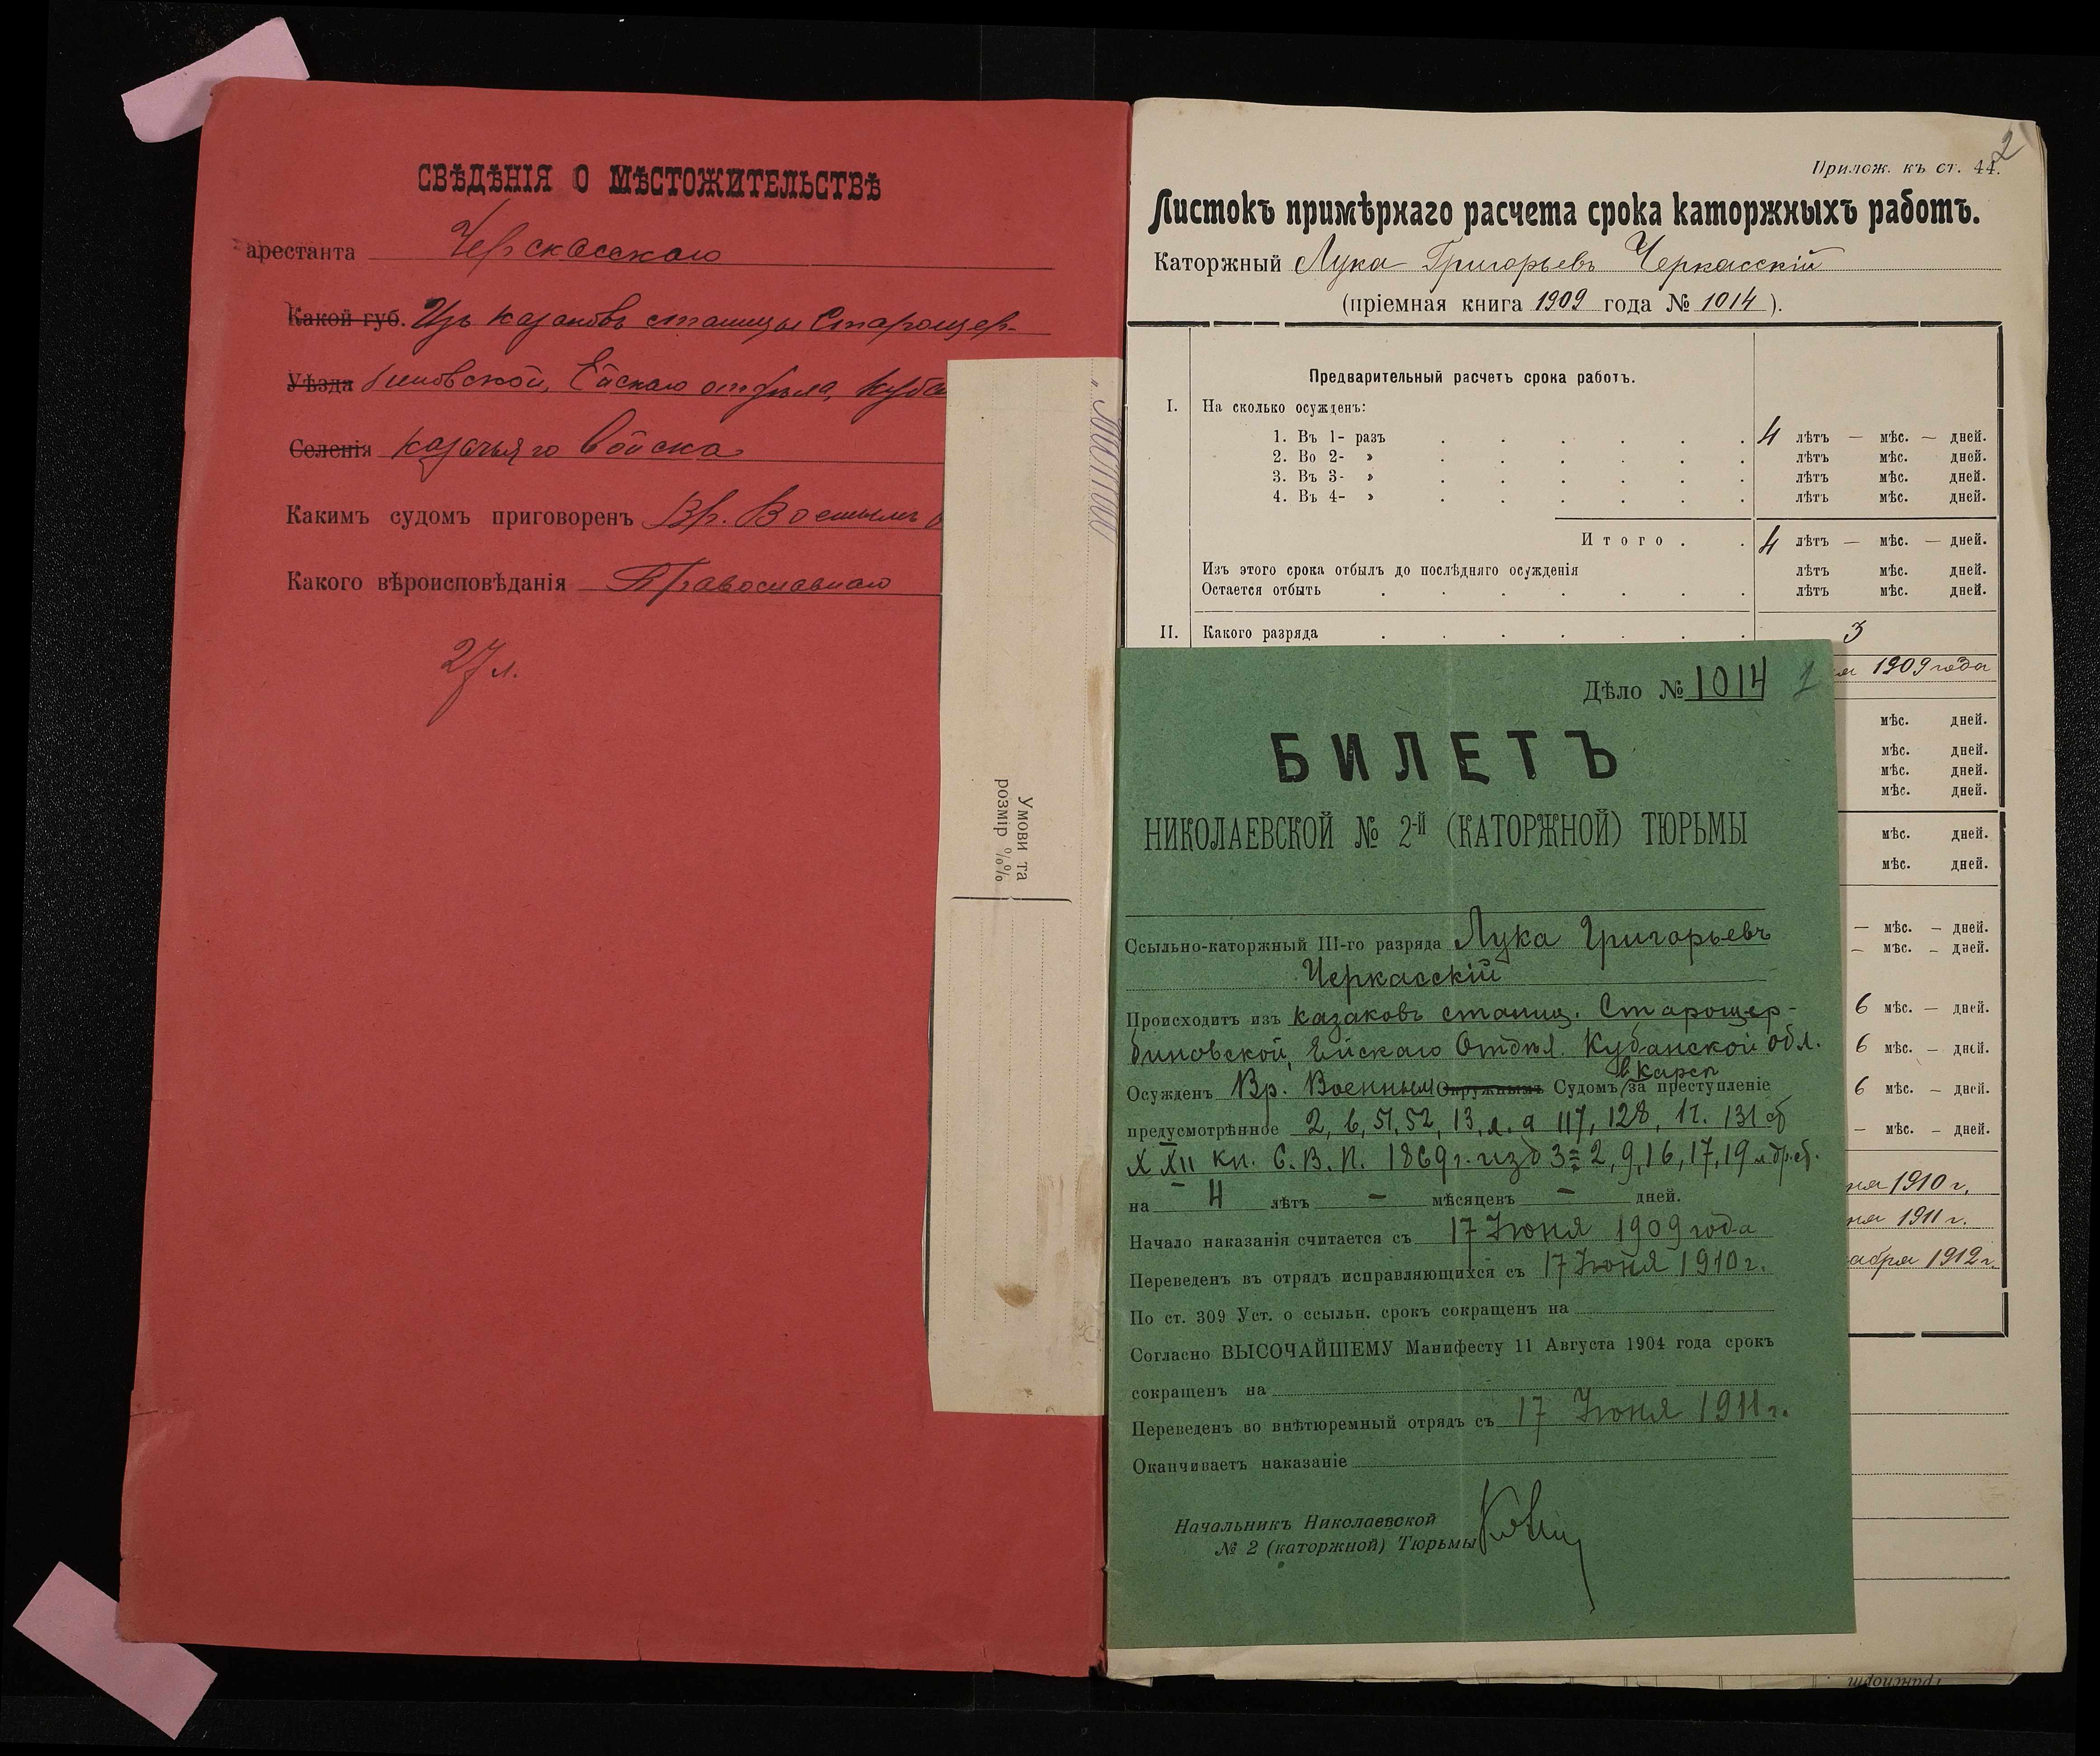 СВѢДѢНІЯ О МѢСТОЖИТЕЛЬСТВѢ
арестанта Черкасскаго
Какой губ. Изъ казаковъ станицы Старощер-
Уѣзда биновской, Ейскаго отдѣла, Куба
Селенія казачьяго войска
Какимъ судомъ приговоренъ Вр. Военнымъ
Какого вѣроисповѣданія Православнаго
27 л.
Умови та
розмір %%
2
Прилож. къ ст. 44.
Листокъ примѣрнаго расчета срока каторжныхъ работъ.
Каторжный Лука Григорьевъ Черкасскій
(пріемная книга 1909 года № 1014).
Предварительный расчетъ срока работъ.
I. На сколько осужденъ:
1. Въ 1- разъ 4 лѣтъ — мѣс. — дней.
2. Во 2- » лѣтъ мѣс. дней.
3. Въ 3- » лѣтъ мѣс. дней.
4. Въ 4- » лѣтъ мѣс. дней.
Итого . . 4 лѣтъ — мѣс. — дней.
Изъ этого срока отбылъ до послѣдняго осужденія лѣтъ мѣс. дней.
Остается отбыть лѣтъ мѣс. дней.
II. Какого разряда 3
1909 года
мѣс. дней.
мѣс. дней.
мѣс. дней.
мѣс. дней.
мѣс. дней.
мѣс. дней.
— мѣс. — дней.
— мѣс. — дней.
6 мѣс. — дней.
6 мѣс. — дней.
6 мѣс. — дней.
— мѣс. — дней.
ня 1910 г.
ня 1911 г.
кабря 1912 г.
Дѣло № 1014 1
БИЛЕТЪ
НИКОЛАЕВСКОЙ № 2-й (КАТОРЖНОЙ) ТЮРЬМЫ
Ссыльно-каторжный III-го разряда Лука Григорьевъ
Черкасскій
Происходитъ изъ казаковъ станиц. Старощер-
биновской, Ейскаго Отдѣл. Кубанской обл.
в Карсѣ
Осужденъ Вр. Военным Окружнымъ Судомъ за преступленіе
предусмотрѣнное 2, 6, 51, 52, 13, 117, 128, 131 ст
XXII кн. С. В. П. 1869 г. изд 3 = 2, 9, 16, 17, 19 и др. ст.
на 4 лѣтъ — мѣсяцевъ — дней.
Начало наказанія считается съ 17 Іюня 1909 года
Переведенъ въ отрядъ исправляющихся съ 17 Іюня 1910 г.
По ст. 309 Уст. о ссыльн. срокъ сокращенъ на
Согласно ВЫСОЧАЙШЕМУ Манифесту 11 Августа 1904 года срокъ
сокращенъ на
Переведенъ во внѣтюремный отрядъ съ 17 Іюня 1911 г.
Оканчиваетъ наказаніе
Начальникъ Николаевской
№ 2 (каторжной) Тюрьмы
Транспорт